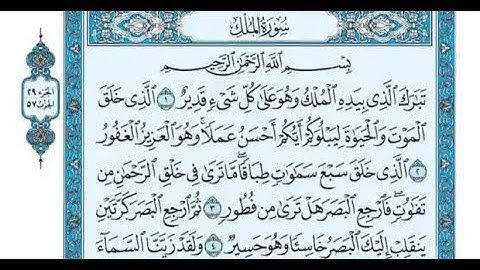 سُورَةُ المُلْكِ
الجزء ٢٩
الحزب ٥٧
بِسْمِ اللَّهِ الرَّحْمَٰنِ الرَّحِيمِ
تَبَٰرَكَ الَّذِي بِيَدِهِ الْمُلْكُ وَهُوَ عَلَىٰ كُلِّ شَيْءٍ قَدِيرٌ ١ الَّذِي خَلَقَ
الْمَوْتَ وَالْحَيَوٰةَ لِيَبْلُوَكُمْ أَيُّكُمْ أَحْسَنُ عَمَلًا ۚ وَهُوَ الْعَزِيزُ الْغَفُورُ
٢ الَّذِي خَلَقَ سَبْعَ سَمَٰوَٰتٍ طِبَاقًا ۖ مَّا تَرَىٰ فِي خَلْقِ الرَّحْمَٰنِ مِن
تَفَٰوُتٍ ۖ فَارْجِعِ الْبَصَرَ هَلْ تَرَىٰ مِن فُطُورٍ ٣ ثُمَّ ارْجِعِ الْبَصَرَ كَرَّتَيْنِ
يَنقَلِبْ إِلَيْكَ الْبَصَرُ خَاسِئًا وَهُوَ حَسِيرٌ ٤ وَلَقَدْ زَيَّنَّا السَّمَآءَ